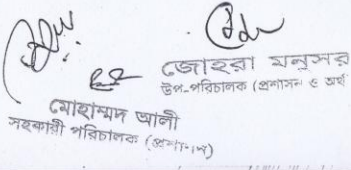 জোহরা মনসুর
উপ-পরিচালক (প্রশাসন ও অর্থ
মোহাম্মদ আলী
সহকারী পরিচালক (প্রশাসন)